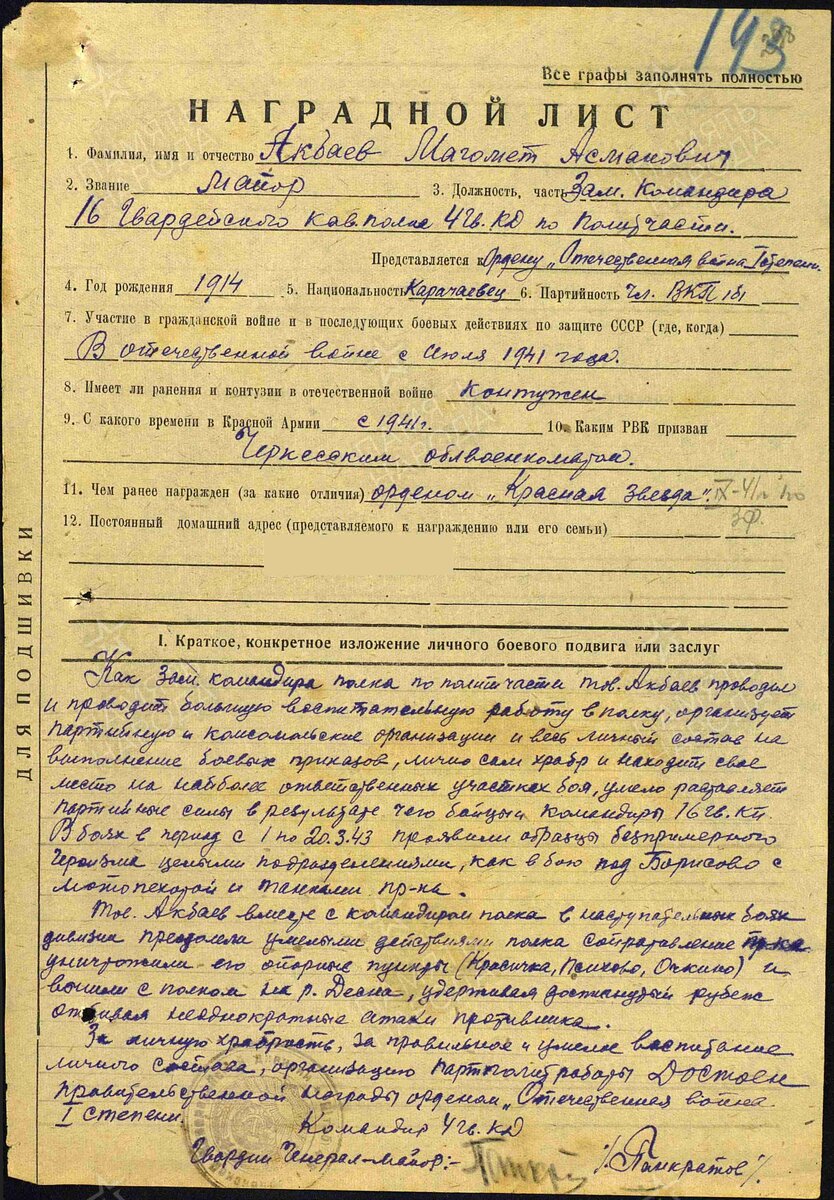 193
Все графы заполнять полностью
НАГРАДНОЙ ЛИСТ
1. Фамилия, имя и отчество Акбаев Магомет Асманович
2. Звание майор 3. Должность, часть Зам. Командира
16 Гвардейского кав. полка 4 Гв. КД по политчасти.
Представляется к Ордену „Отечественная война I степени.
4. Год рождения 1914 5. Национальность Карачаевец 6. Партийность Чл. ВКП(б)
7. Участие в гражданской войне и в последующих боевых действиях по защите СССР (где, когда)
В отечественной войне с Июля 1941 года.
8. Имеет ли ранения и контузии в отечественной войне контужен
9. С какого времени в Красной Армии с 1941 г. 10. Каким РВК призван
Черкесским облвоенкоматом.
11. Чем ранее награжден (за какие отличия) орденом „Красная звезда".
12. Постоянный домашний адрес (представляемого к награждению или его семьи)
ДЛЯ ПОДШИВКИ
I. Краткое, конкретное изложение личного боевого подвига или заслуг
Как зам. командира полка по политчасти тов. Акбаев проводил
и проводит большую воспитательную работу в полку, организует
партийную и комсомольские организации и весь личный состав на
выполнение боевых приказов, лично сам храбр и находит свое
место на наиболее ответственных участках боя, умело расставляет
партийные силы в результате чего бойцы и командиры 16 гв. кп.
В боях в период с 1 по 20.3.43 проявили образцы беспримерного
героизма целыми подразделениями, как в бою под Борисово с
мотопехотой и танками пр-ка.
Тов. Акбаев вместе с командиром полка в наступательных боях
дивизии преодолели умелыми действиями полка сопротивление пр-ка
уничтожили его опорные пункты (Красичка, Психово, Очкино) и
вышли с полком на р. Десна, удерживая достигнутый рубеж
отбивая неоднократные атаки противника.
За личную храбрость, за правильное и умелое воспитание
личного состава, организацию партполитработы Достоен
правительственной награды орденом „Отечественная война
I степени.
Командир 4 гв. кд
Гвардии Генерал-майор:- /Панкратов/